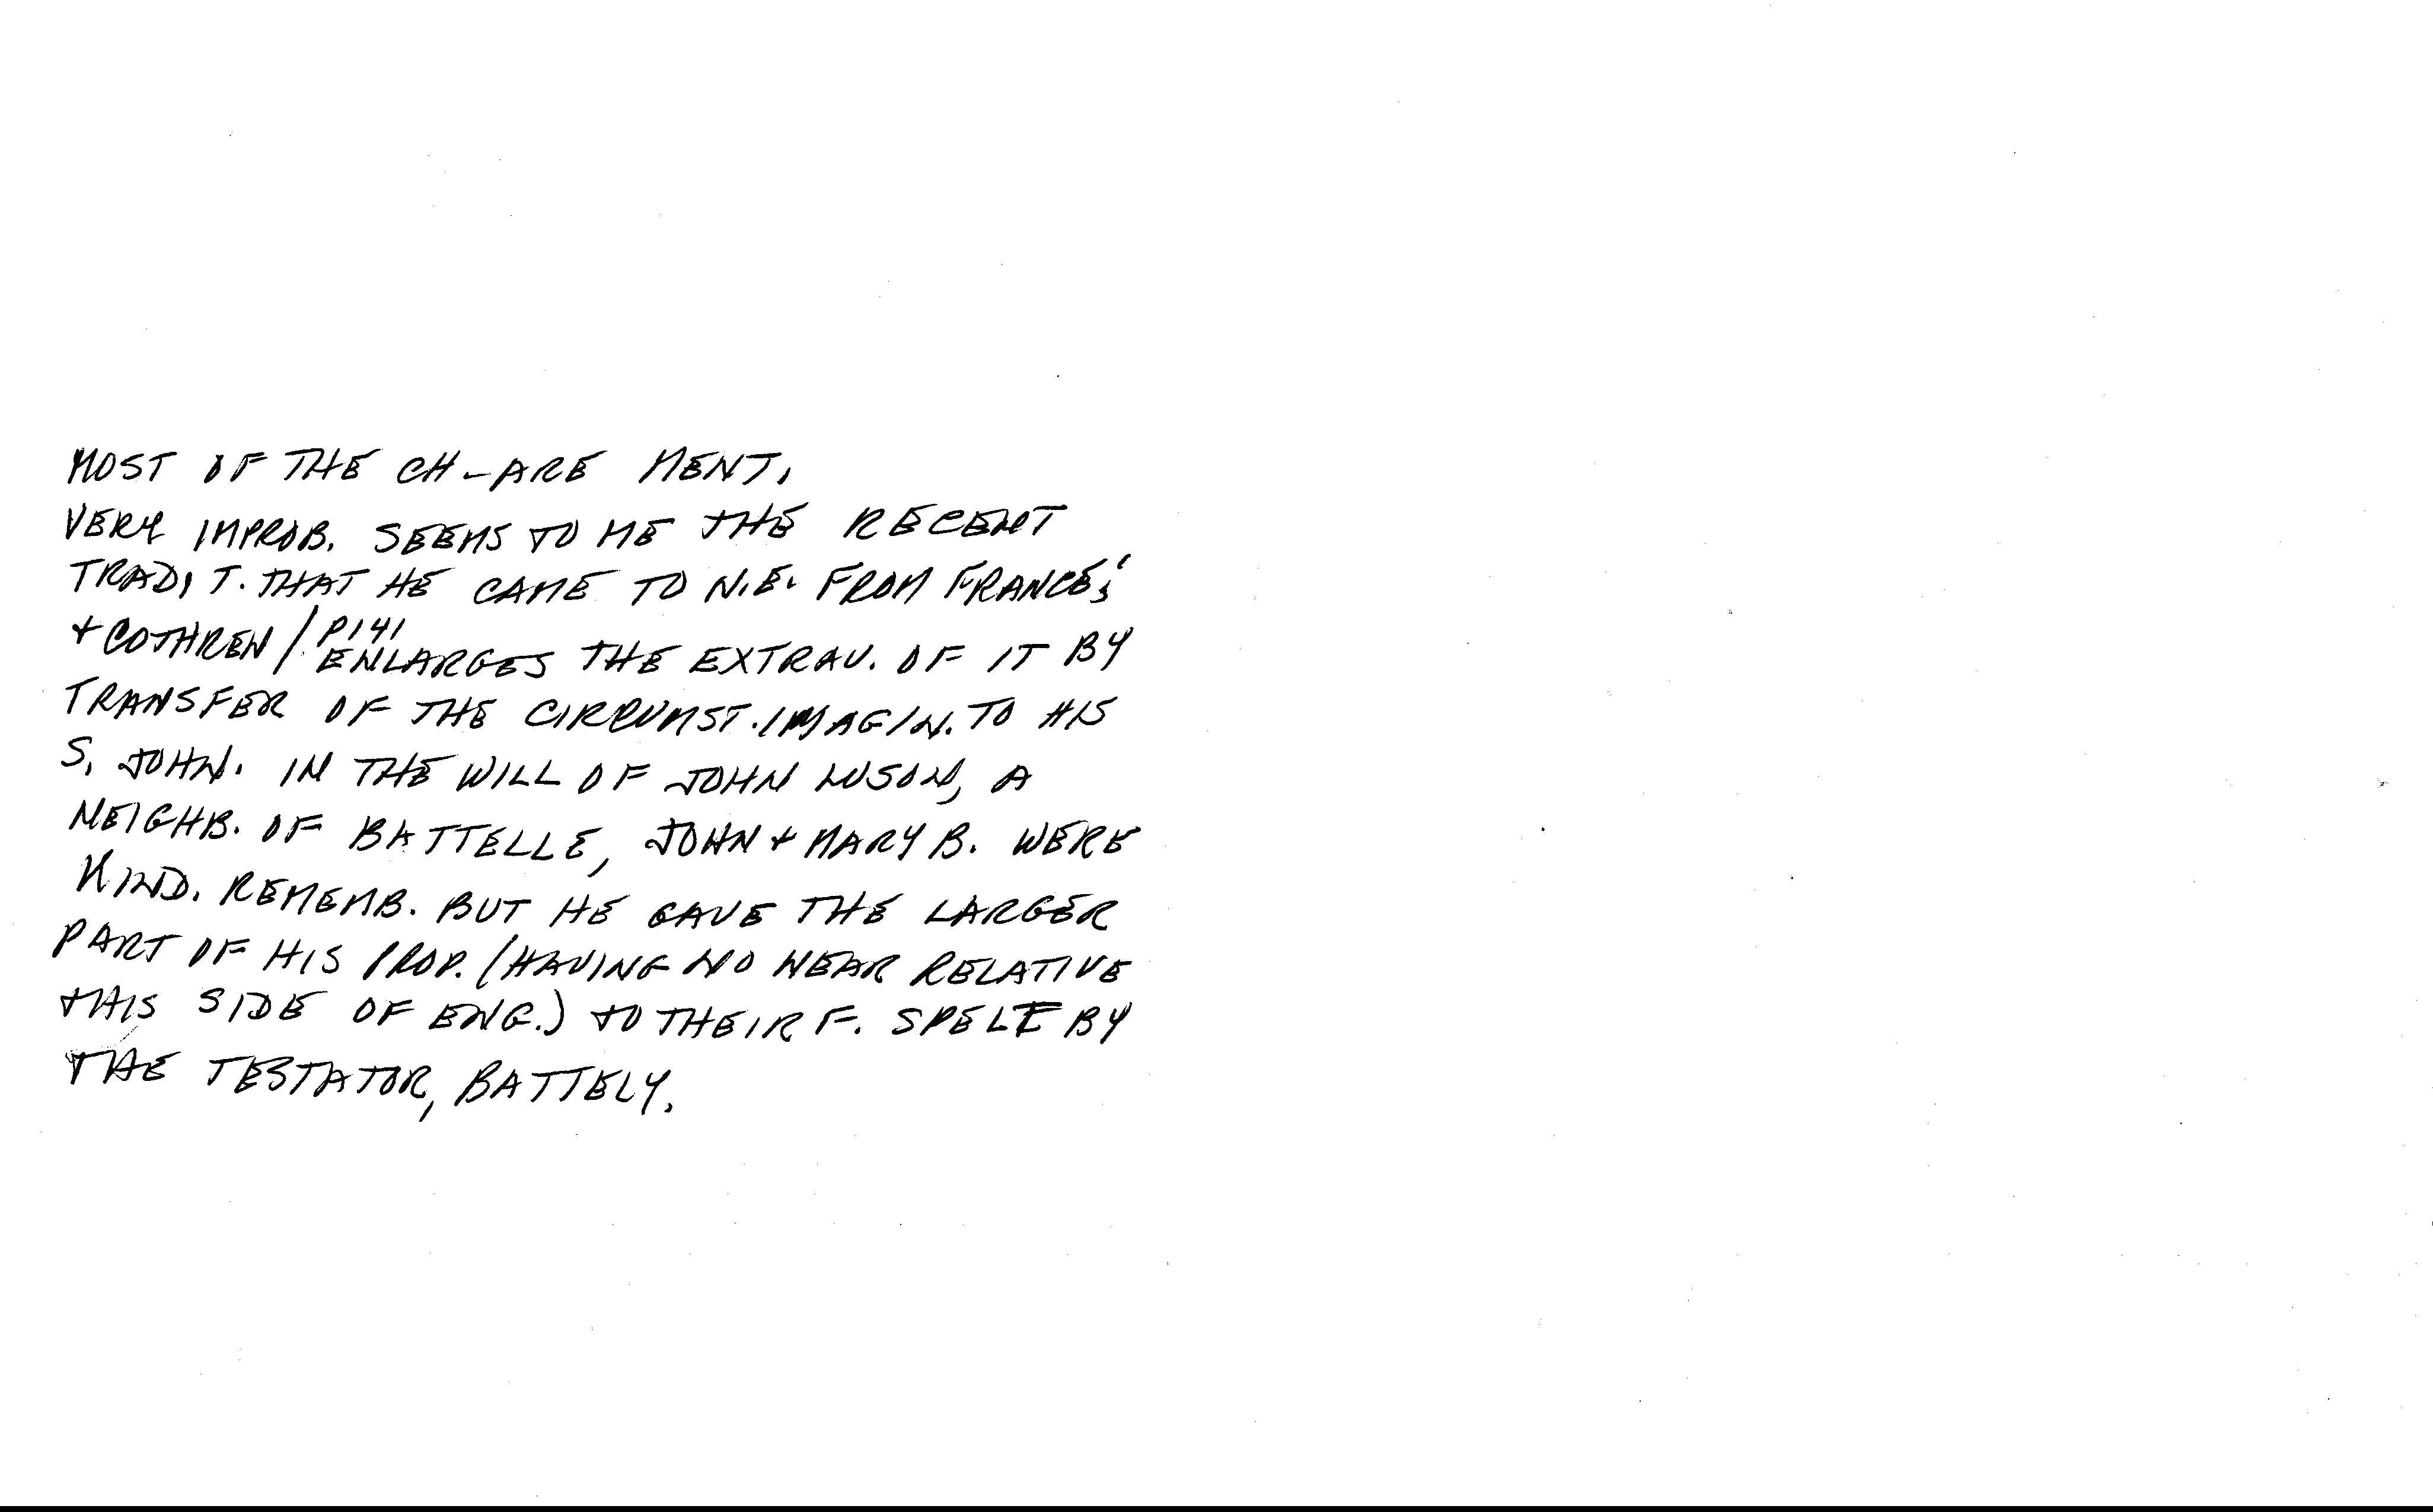 MOST OF THE CH-ARE MENT.
VERY IMPROB. SEEMS TO ME THE RECENT
TRADIT. THAT HE CAME TO N.E. FROM FRANCE;
+ COTHREN / P141
ENLARGES THE EXTRAV. OF IT BY
TRANSFER OF THE CIRCUMST. IMAGIN. TO HIS
S. JOHN. IN THE WILL OF JOHN LUSON, A
NEIGHB. OF BATTELLE, JOHN + MARY B. WERE
KIND. REMEMB. BUT HE GAVE THE LARGER
PART OF HIS PROP. (HAVING NO NEAR RELATIVE
THIS SIDE OF ENG.) TO THEIR F. SPELT BY
THE TESTATOR, BATTELY.